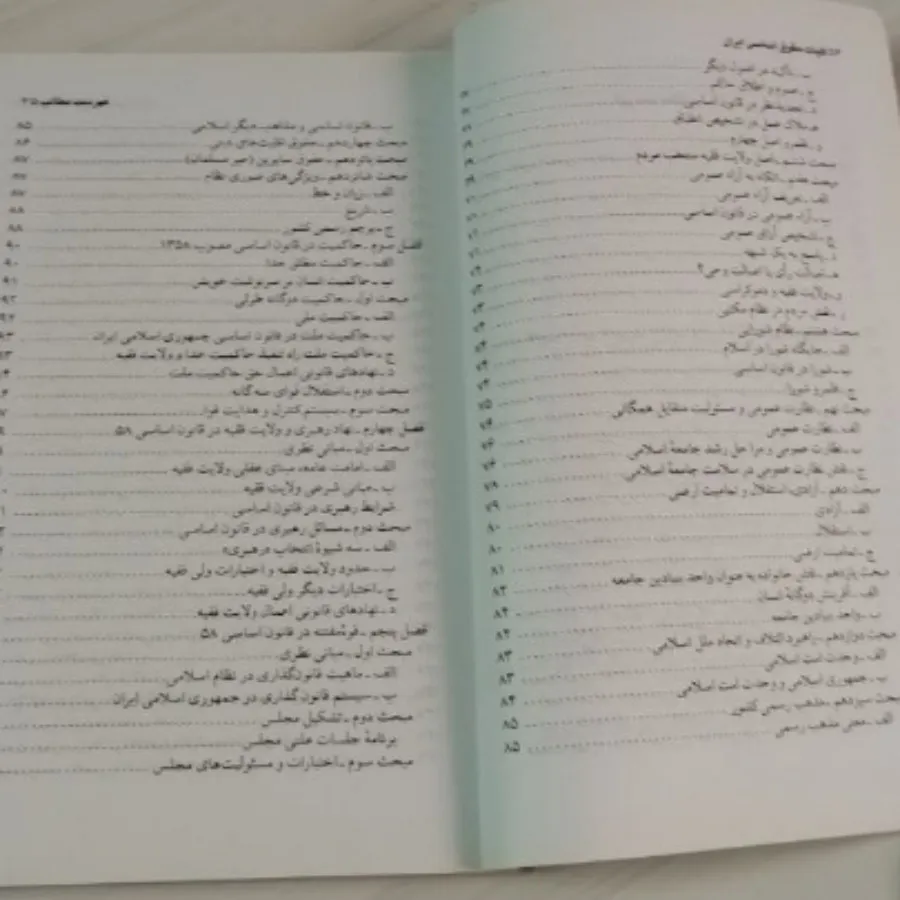 حقوق اساسی ایران
ب ـ تأکید در اصول دیگر
ج ـ عموم و اطلاق حاکم
د ـ تجدیدنظر در قانون اساسی
هـ ـ ملاک عمل در تشخیص انطباق
و ـ قلمرو اصل چهارم
مبحث ششم ـ اصل ولایت فقیه منتخب مردم
مبحث هفتم ـ اتکاء به آراء عمومی
الف ـ تعریف آراء عمومی
ب ـ آراء عمومی در قانون اساسی
ج ـ تشخیص آرای عمومی
د ـ پاسخ به یک شبهه
هـ ـ اصالت رأی یا اصالت وحی؟
و ـ ولایت فقیه و دموکراسی ۷۳
ز ـ نقش مردم در نظام مکتبی ۷۳
مبحث هشتم ـ نظام شورایی ۷۴
الف ـ جایگاه شورا در اسلام ۷۴
ب ـ شورا در قانون اساسی ۷۴
ج ـ قلمرو شورا ۷۴
مبحث نهم ـ نظارت عمومی و مسئولیت متقابل همگانی ۷۵
الف ـ نظارت عمومی
ب ـ نظارت عمومی و مراحل رشد جامعهٔ اسلامی ۷۶
ج ـ نقش نظارت عمومی در سلامت جامعهٔ اسلامی
مبحث دهم ـ آزادی، استقلال و تمامیت ارضی ۷۸
الف ـ آزادی ۷۹
ب ـ استقلال ۸۰
ج ـ تمامیت ارضی ۸۰
مبحث یازدهم ـ نقش خانواده به عنوان واحد بنیادین جامعه ۸۱
الف ـ آفرینش دوگانهٔ انسان
ب ـ واحد بنیادین جامعه
مبحث دوازدهم ـ راهبرد ائتلاف و اتحاد ملل اسلامی
الف ـ وحدت امت اسلامی ۸۳
ب ـ جمهوری اسلامی و وحدت امت اسلامی ۸۳
مبحث سیزدهم ـ مذهب رسمی کشور ۸۴
الف ـ معنی مذهب رسمی ۸۵
۸۵
فهرست مطالب
ب ـ قانون اساسی و مذاهب دیگر اسلامی ۸۵
مبحث چهاردهم ـ حقوق اقلیت‌های دینی ۸۶
مبحث پانزدهم ـ حقوق سایرین (غیر مسلمانان) ۸۷
مبحث شانزدهم ـ ویژگی‌های صوری نظام ۸۷
الف ـ زبان و خط ۸۷
ب ـ تاریخ ۸۸
ج ـ پرچم رسمی کشور ۸۸
فصل سوم ـ حاکمیت در قانون اساسی مصوب ۱۳۵۸ ۹۰
الف ـ حاکمیت مطلق خدا ۹۰
ب ـ حاکمیت انسان بر سرنوشت خویش ۹۱
مبحث اول ـ حاکمیت دوگانه طولی ۹۲
الف ـ حاکمیت ملی
ب ـ حاکمیت ملت در قانون اساسی جمهوری اسلامی ایران
ج ـ حاکمیت ملت راه تنفیذ حاکمیت خدا و ولایت فقیه
د ـ نهادهای قانونی اعمال حق حاکمیت ملت
مبحث دوم ـ استقلال قوای سه‌گانه
مبحث سوم ـ سیستم کنترل و هدایت قوا
فصل چهارم ـ نهاد رهبری و ولایت فقیه در قانون اساسی ۵۸
مبحث اول ـ مبانی نظری
الف ـ امامت عامه، مبنای عقلی ولایت فقیه
ب ـ مبانی شرعی ولایت فقیه
شرایط رهبری در قانون اساسی
مبحث دوم ـ مسائل رهبری در قانون اساسی
الف ـ سه شیوهٔ انتخاب «رهبری»
ب ـ حدود ولایت فقیه و اختیارات ولی فقیه
ج ـ اختیارات دیگر ولی فقیه
د ـ نهادهای قانونی اعمال ولایت فقیه
فصل پنجم ـ قوهٔ مقننه در قانون اساسی ۵۸
مبحث اول ـ مبانی نظری
الف ـ ماهیت قانون‌گذاری در نظام اسلامی
ب ـ سیستم قانون گذاری در جمهوری اسلامی ایران
مبحث دوم ـ تشکیل مجلس
برنامهٔ جلسات علنی مجلس
مبحث سوم ـ اختیارات و مسئولیت‌های مجلس